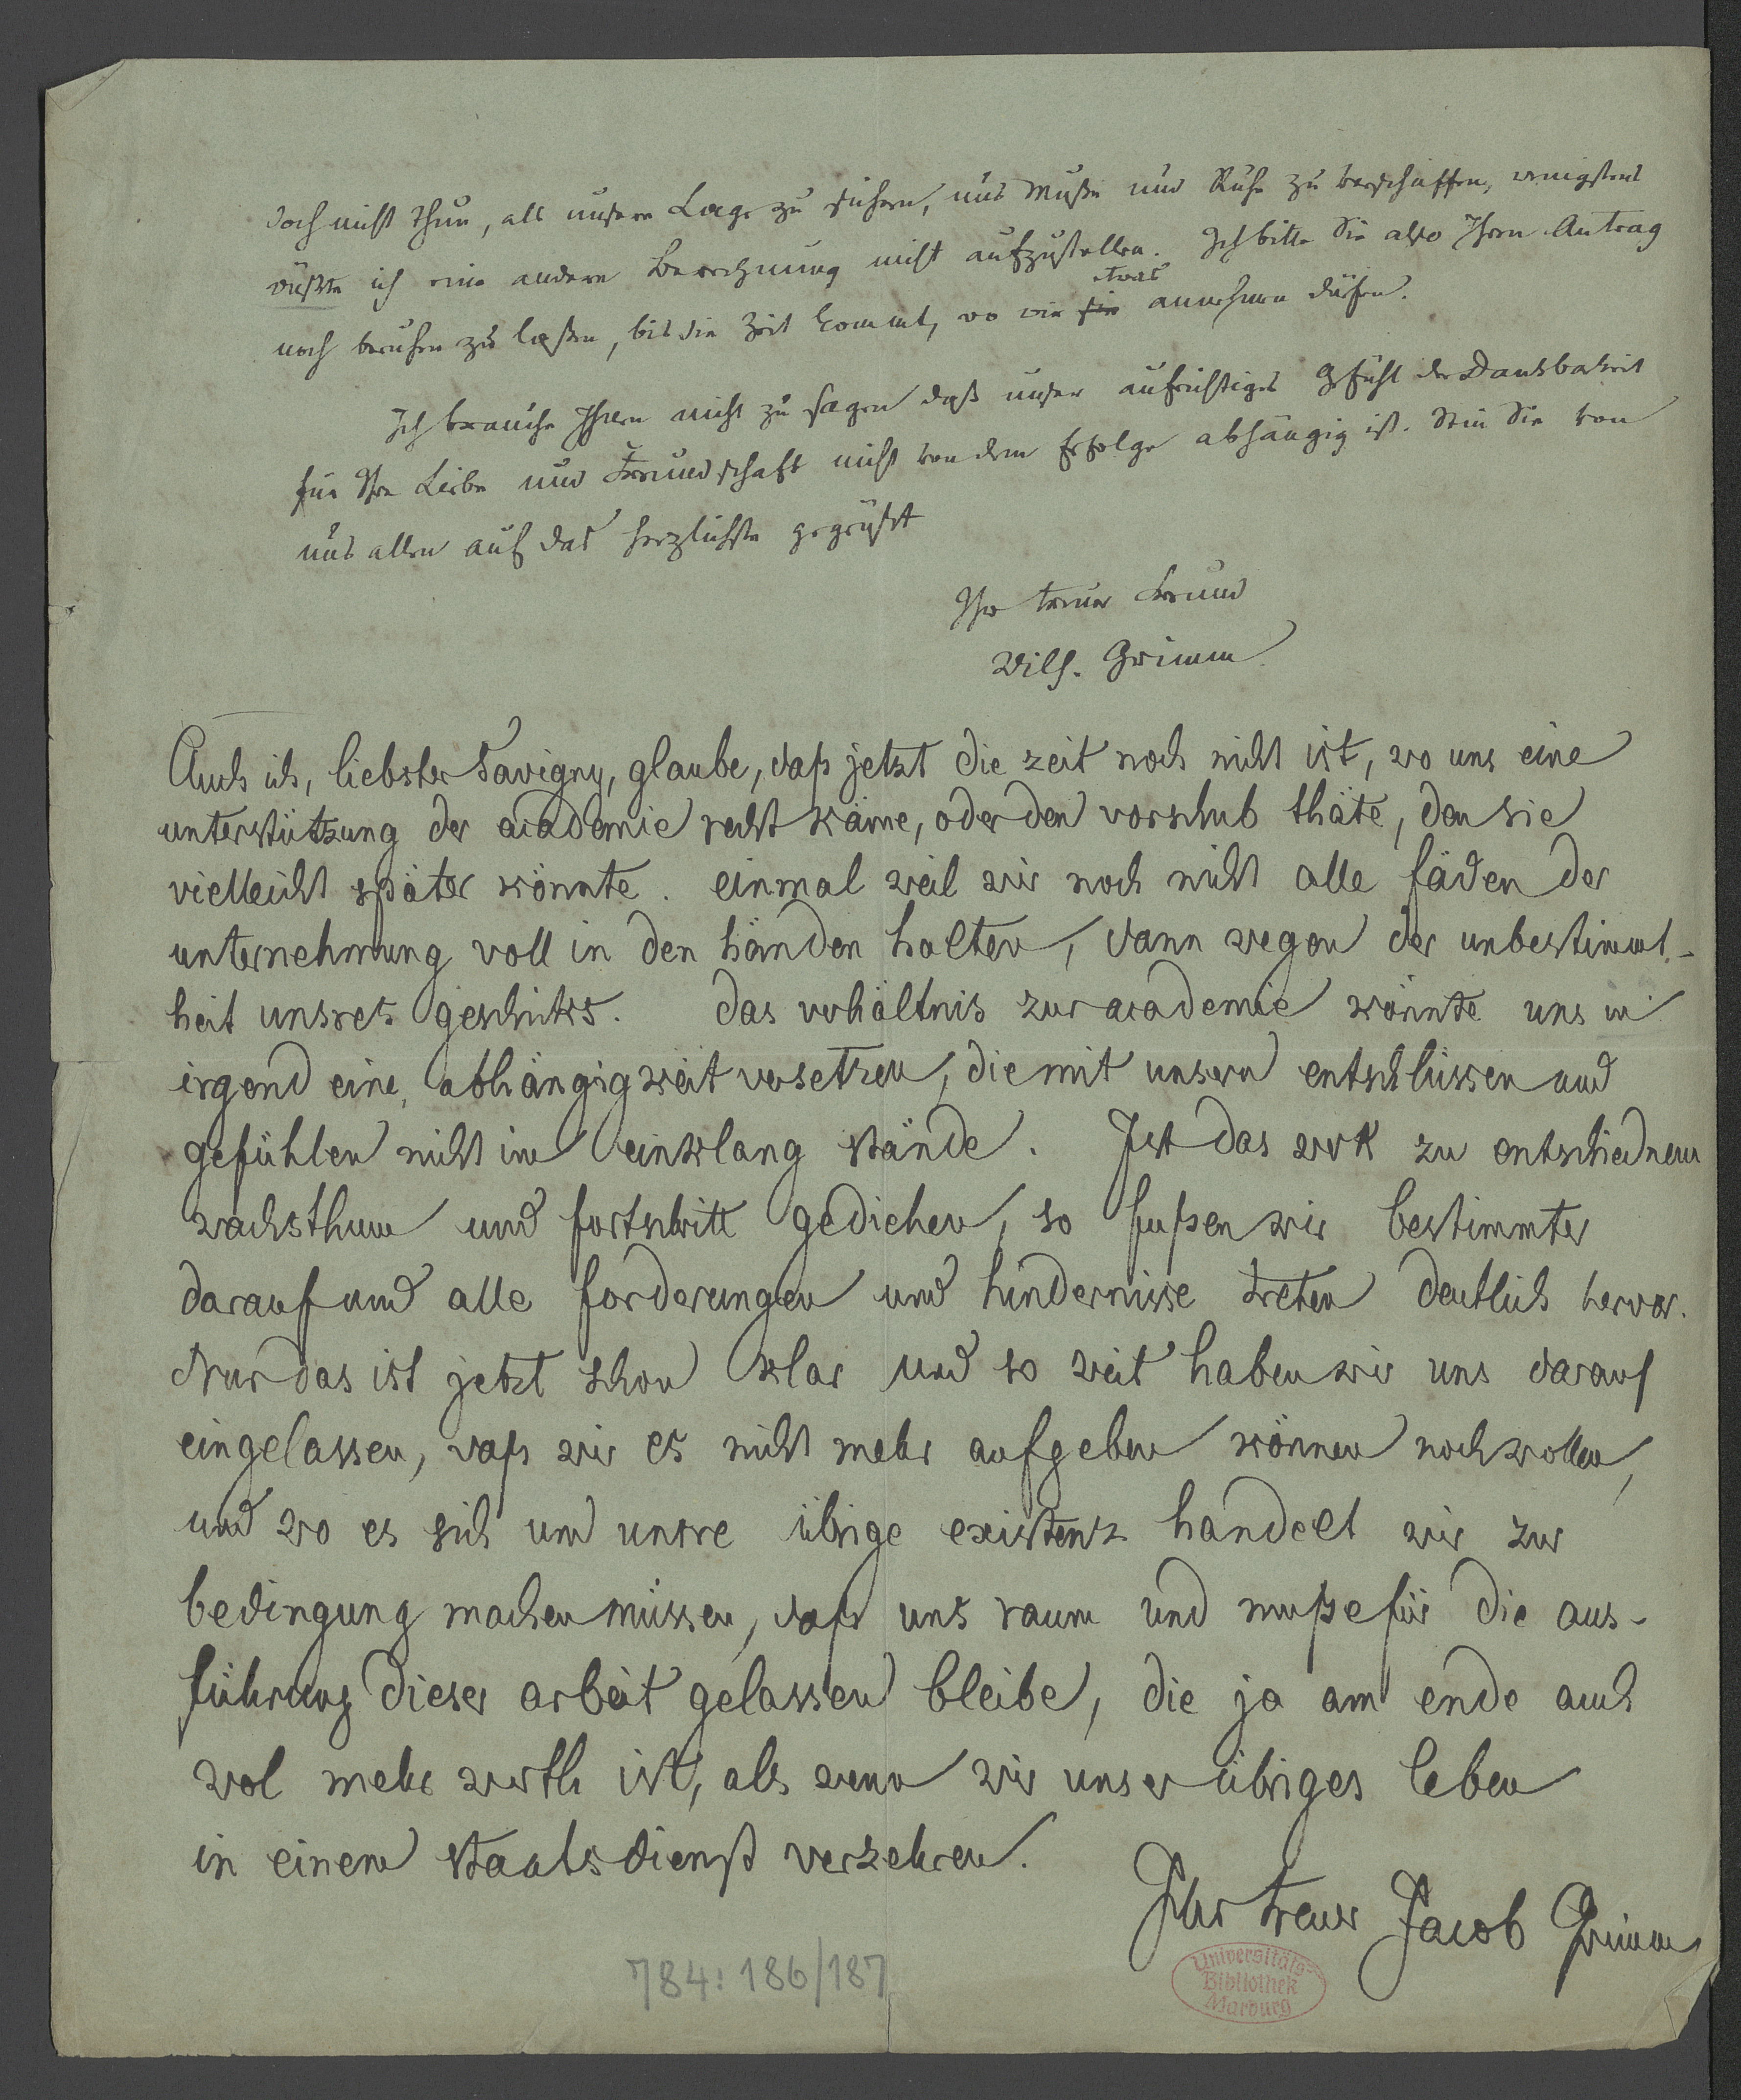 doch nicht thun, als unsere Lage zu sichern, uns Muße und Ruhe zu verschaffen, wenigstens
wüßte ich eine andere Berechnung nicht aufzustellen. Ich bitte Sie also Ihren Antrag
etwas
noch beruhen zu laßen, bis die Zeit kommt, wo wir sie annehmen dürfen.
Ich brauche Ihnen nicht zu sagen daß unser aufrichtiges Gefühl der Dankbarkeit
für Ihre Liebe und Freundschaft nicht von dem Erfolge abhängig ist. Sein Sie von
uns allen auf das herzlichste gegrüßt
Ihr treuer Freund
Wilh. Grimm.
Auch ich, liebster Savigny, glaube, daß jetzt die zeit noch nicht ist, wo uns eine
unterstützung der academie recht käme, oder den vorschub thäte, den sie
vielleicht später könnte. einmal weil wir noch nicht alle fäden der
unternehmung voll in den händen halten, dann wegen der unbestimmt-
heit unsres geschicks. das verhältnis zur academie könnte uns in
irgend eine abhängigkeit versetzen, die mit unsern entschlüssen und
gefühlen nicht im einklang stände. Ist das werk zu entschiednem
wachsthum und fortschritt gediehen, so fußen wir bestimmter
darauf und alle forderungen und hindernisse treten deutlich hervor.
Nur das ist jetzt schon klar und so weit haben wir uns darauf
eingelassen, daß wir es nicht mehr aufgeben können noch wollen,
und wo es sich um unsre übrige existenz handelt wir zur
bedingung machen müssen, daß uns raum und muße für die aus-
führung dieser arbeit gelassen bleibe, die ja am ende auch
wol mehr werth ist, als wenn wir unser übriges leben
in einem staatsdienst verzehren.
Ihr treuer Jacob Grimm
784: 186/187
Universitäts-
Bibliothek
Marburg